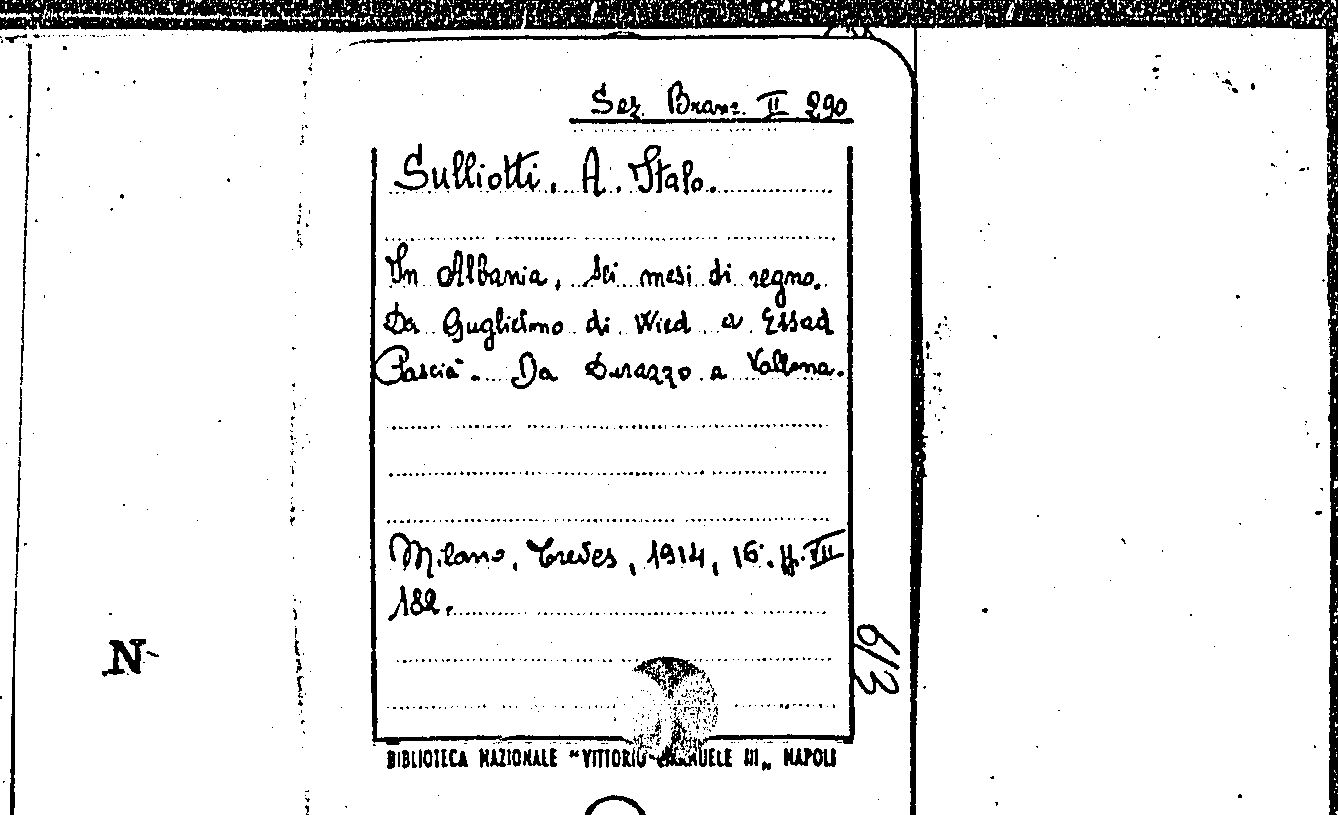 Sez. Branc. II 290
Sulliotti. A. Italo.
In Albania, sei mesi di regno.
Da Guglielmo di Wied a Essad
Pascià. Da Durazzo a Vallona.
Milano, Treves, 1914, 16°. pp. VII
182.
N
613
BIBLIOTECA NAZIONALE "VITTORIO EMANUELE III„ NAPOLI